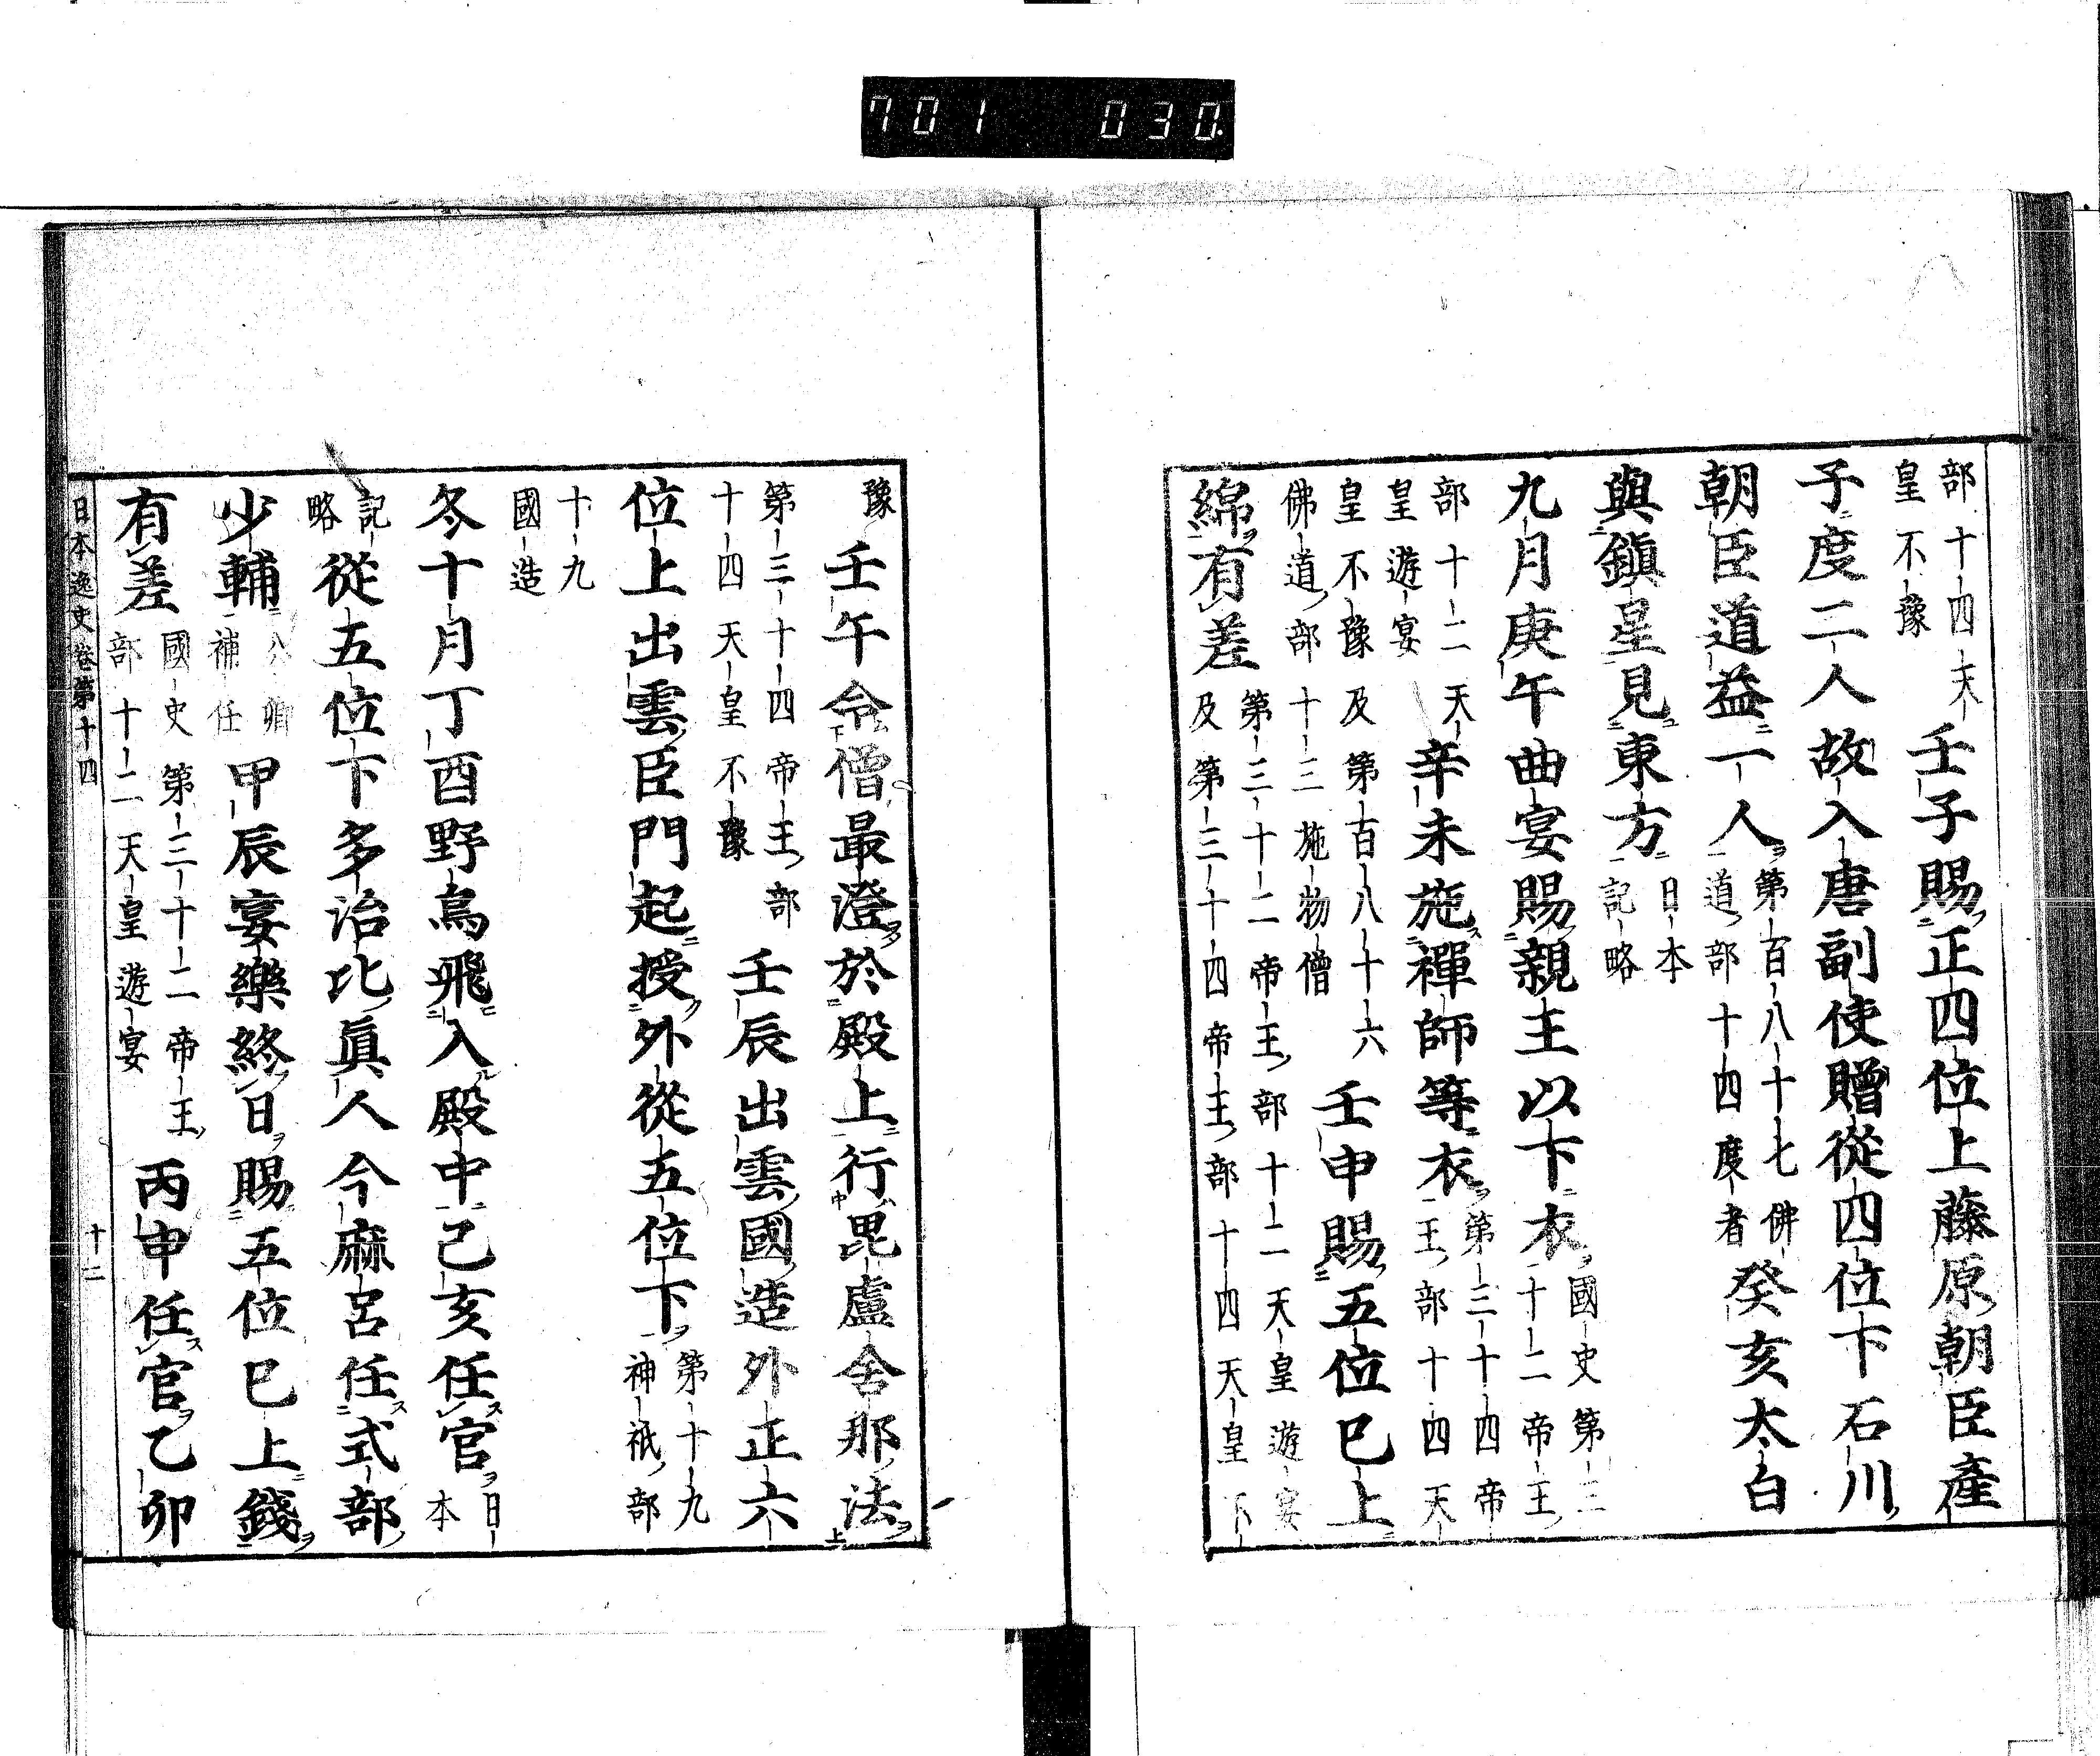 701 030
部十四天
皇不豫
壬子賜正四位上藤原朝臣產
子度二人故入唐副使贈從四位下石川
朝臣道益一人
第百八十七佛
道部十四度者
癸亥太白
與鎭星見東方
日本
記略
九月庚午曲宴賜親王以下衣
國史第三
十二帝王
部十二天
皇遊宴
辛未施禪師等衣
第三十四帝
王部十四天
皇不豫及第百八十六
佛道部十三施物僧
壬申賜五位已上
綿有差
第三十二帝王部十二天皇遊宴
及第三十四帝王部十四天皇不
豫
壬午令僧最澄於殿上行毘盧舍那法
第三十四帝王部
十四天皇不豫
壬辰出雲國造外正六
位上出雲臣門起授外從五位下
第十九
神祇部
十九
國造
冬十月丁酉野烏飛入殿中己亥任官
日
本
記
略
從五位下多治比眞人今麻呂任式部
少輔
公卿
補任
甲辰宴樂終日賜五位已上錢
有差
國史第三十二帝王
部十二天皇遊宴
丙申任官乙卯
日本逸史卷第十四
十二